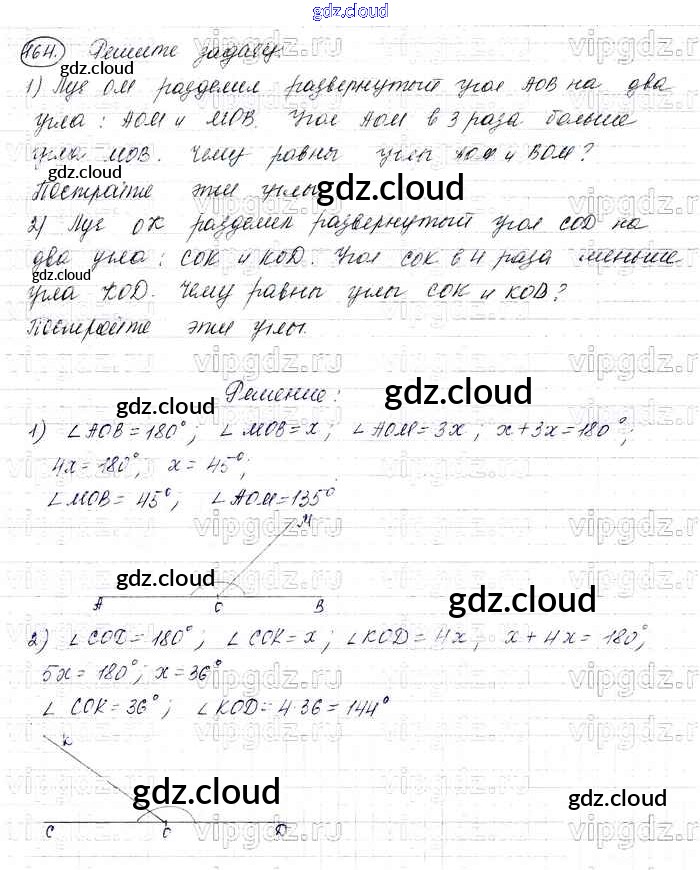 gdz.cloud
164. Решите задачу
gdz.cloud
1) Луч ОМ разделил развернутый угол АОВ на два
угла: АОМ и МОВ. Угол АОМ в 3 раза больше
угла МОВ. Чему равны углы АОМ и ВОМ?
Постройте эти углы
gdz.cloud
2) Луч ОК разделил развернутый угол COD на
два угла: СОК и KOD. Угол СОК в 4 раза меньше
gdz.cloud
угла KOD. Чему равны углы СОК и KOD?
Постройте эти углы.
Решение:
gdz.cloud
gdz.cloud
1) ∠AOB = 180°; ∠MOB = x; ∠AOM = 3x; x + 3x = 180°;
4x = 180°; x = 45°;
∠MOB = 45°; ∠AOM = 135°
M
gdz.cloud
gdz.cloud
A O B
2) ∠COD = 180°; ∠COK = x; ∠KOD = 4x, x + 4x = 180°;
5x = 180°; x = 36°
∠COK = 36°; ∠KOD = 4·36 = 144°
K
gdz.cloud
gdz.cloud
C O D
vipgdz.ru